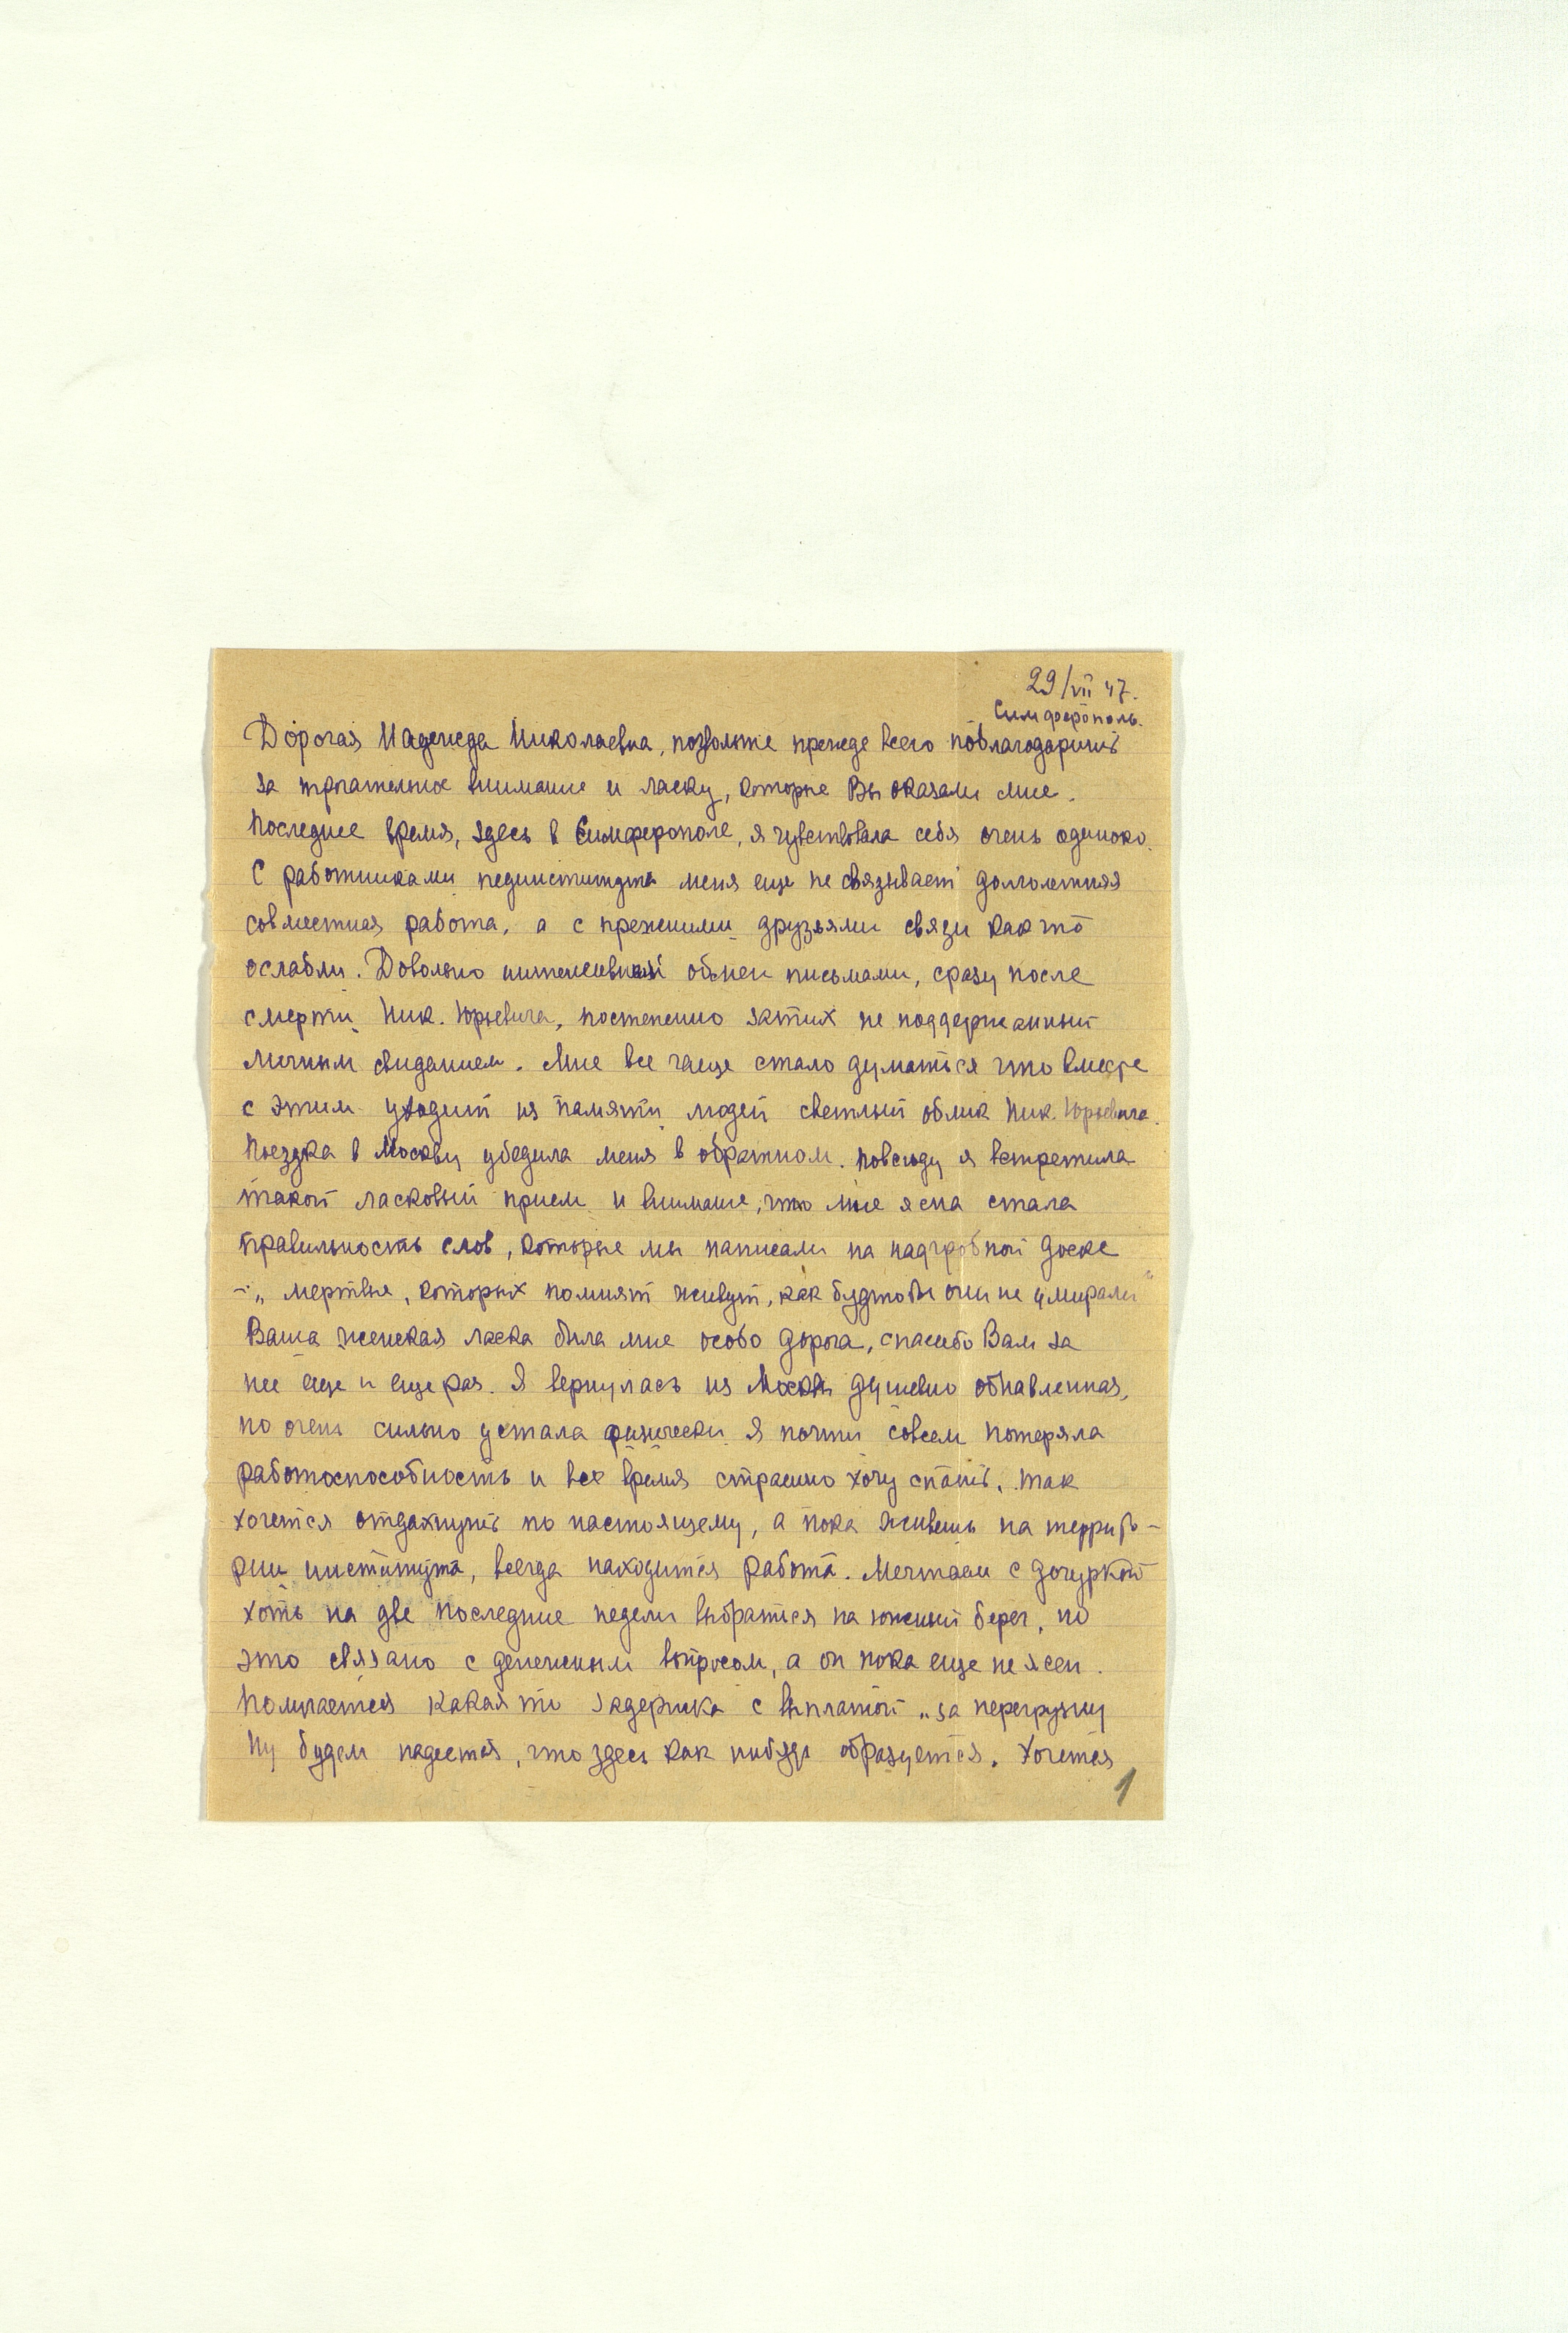 29/VII 47.
Симферополь.
Дорогая Надежда Николаевна, позвольте прежде всего поблагодарить
за трогательное внимание и ласку, которые Вы оказали мне.
Последнее время, здесь в Симферополе, я чувствовала себя очень одиноко.
С работниками пединститута меня еще не связывает долголетняя
совместная работа, а с прежними друзьями связи как то
ослабли. Довольно интенсивный обмен письмами, сразу после
смерти Ник. Юрьевича, постепенно затих не поддержанный
личным свиданием. Мне все чаще стало думаться что вместе
с этим уходит из памяти людей светлый облик Ник. Юрьевича.
Поездка в Москву убедила меня в обратном. Повсюду я встретила
такой ласковый прием и внимание, что мне ясна стала
правильность слов, которые мы написали на надгробной доске
- „мертвые, которых помнят живут, как будто бы они не умирали"
Ваша женская ласка была мне особо дорога, спасибо Вам за
нее еще и еще раз. Я вернулась из Москвы душевно обнавленная,
но очень сильно устала физически. Я почти совсем потеряла
работоспособность и все время страшно хочу спать. Так
хочется отдахнуть по настоящему, а пока живешь на террито-
рии института, всегда находится работа. Мечтаем с дочуркой
хоть на две последние недели выбраться на южный берег, но
это связано с денежным вопросом, а он пока еще не ясен.
Получается какая то задержка с выплатой „за перегрузку
Ну будем надеяться, что здесь как нибудь образуется. Хочется
1